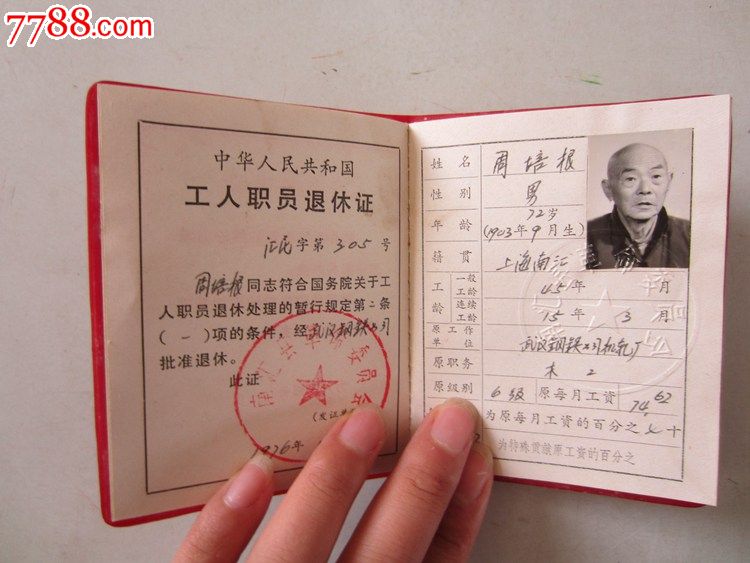 7788.com
中华人民共和国
工人职员退休证
江民字第305号
周培根同志符合国务院关于工
人职员退休处理的暂行规定第二条
(一)项的条件，经武汉钢铁公司
批准退休。
此证
(发证
1976年
姓名 周培根
性别 男
年龄 72岁
(1903年9月生)
籍贯 上海南汇
工龄 一般工龄 45年 月
连续工龄 15年3月
原工作单位 武汉钢铁公司机轧厂
原职务 木工
原级别 6级 原每月工资 74.62
为原每月工资的百分之七十
为特殊贡献原工资的百分之